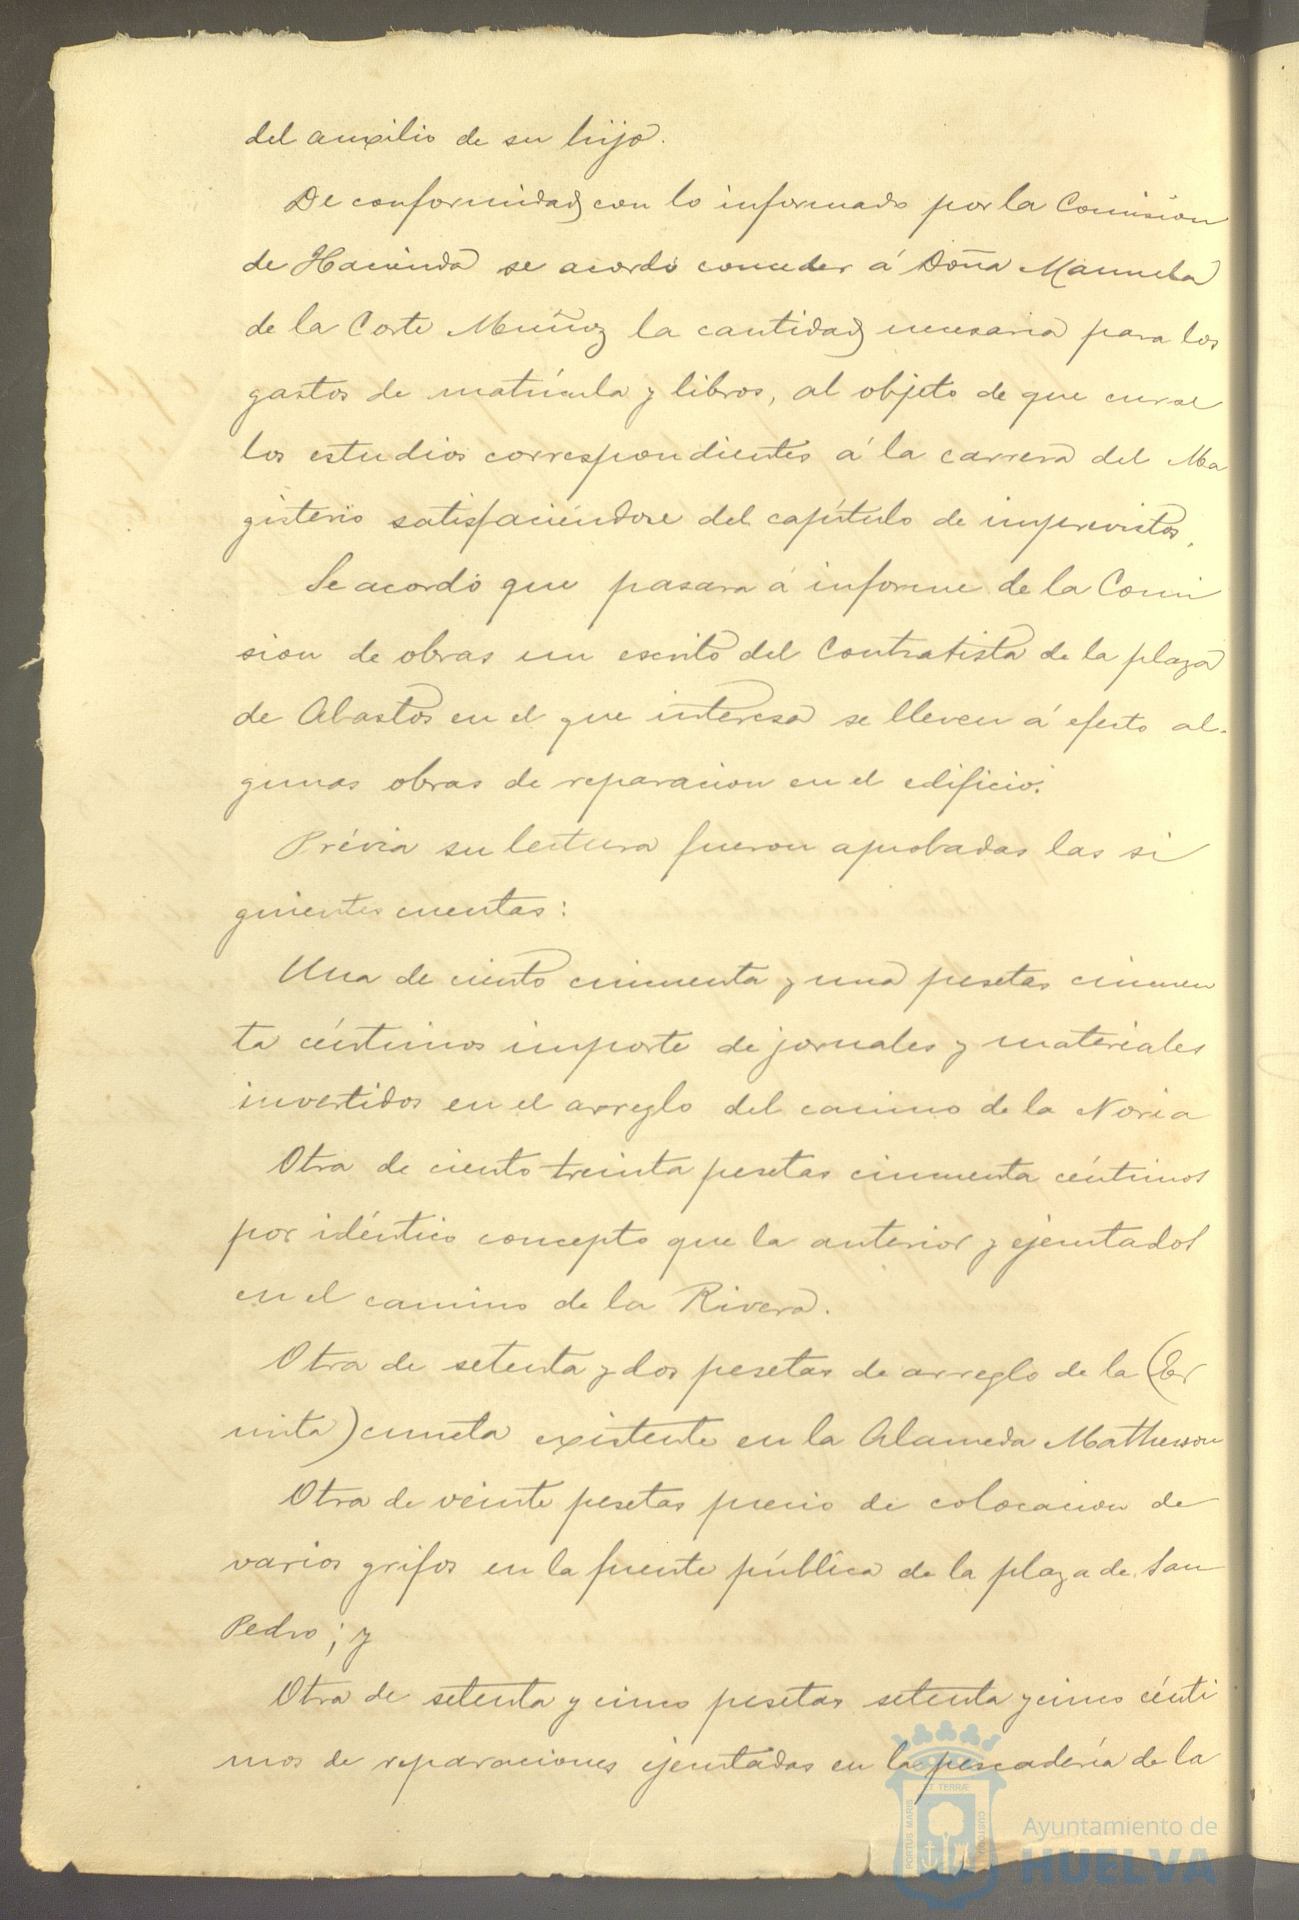 del auxilio de su hijo.
De conformidad con lo informado por la Comision
de Hacienda se acordó conceder á Doña Manuela
de la Corte Muñoz la cantidad necesaria para los
gastos de matrícula y libros, al objeto de que curse
los estudios correspondientes á la carrera del Ma
gisterio satisfaciéndose del capítulo de imprevistos.
Se acordó que pasara á informe de la Comi
sion de obras un escrito del Contratista de la plaza
de Abastos en el que interesa se lleven á efecto al-
gunas obras de reparacion en el edificio.
Prévia su lectura fueron aprobadas las si
guientes cuentas:
Una de ciento cincuenta y una pesetas cincuen
ta céntimos importe de jornales y materiales
invertidos en el arreglo del camino de la Noria
Otra de ciento treinta pesetas cincuenta céntimos
por idéntico concepto que la anterior y ejecutados
en el camino de la Rivera.
Otra de setenta y dos pesetas de arreglo de la (Er
mita) cuneta existente en la Alameda Mathewson
Otra de veinte pesetas precio de colocacion de
varios grifos en la fuente pública de la plaza de San
Pedro; y
Otra de setenta y cinco pesetas setenta y cinco cénti
mos de reparaciones ejecutadas en la pescadería de la
ET TERRÆ
PORTUS MARIS
CUSTODIA
Ayuntamiento de
HUELVA